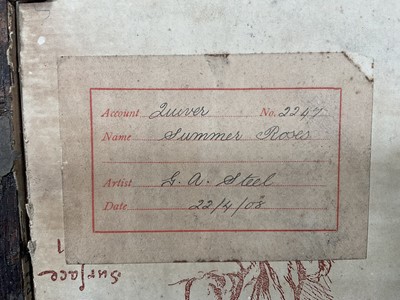 Account Quiver No. 2247
Name Summer Roses
Artist G. A. Steel
Date 22/4/08
Surface